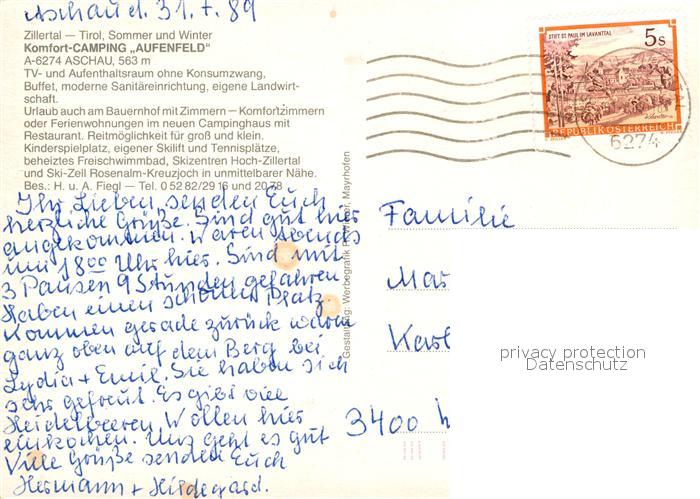 Aschau d. 31.7.89
Zillertal — Tirol, Sommer und Winter
Komfort-CAMPING „AUFENFELD"
A-6274 ASCHAU, 563 m
TV- und Aufenthaltsraum ohne Konsumzwang,
Buffet, moderne Sanitäreinrichtung, eigene Landwirt-
schaft.
Urlaub auch am Bauernhof mit Zimmern — Komfortzimmern
oder Ferienwohnungen im neuen Campinghaus mit
Restaurant. Reitmöglichkeit für groß und klein.
Kinderspielplatz, eigener Skilift und Tennisplätze,
beheiztes Freischwimmbad, Skizentren Hoch-Zillertal
und Ski-Zell Rosenalm-Kreuzjoch in unmittelbarer Nähe.
Bes.: H. u. A. Fiegl — Tel. 0 52 82/29 16 und 20 78
Ihr Lieben, senden Euch
herzliche Grüße. Sind gut hier
angekommen. Waren abends
um 18 00 Uhr hier. Sind mit
3 Pausen 9 Stunden gefahren
Haben einen schönen Platz.
Kommen gerade zurück waren
ganz oben auf dem Berg bei
Lydia + Emil. Sie haben sich
sehr gefreut. Es gibt viele
Heidelbeeren. Wollen hier
einkochen. Uns geht es gut
Viele Grüße senden Euch
Hermann + Hildegard.
Gestaltung: Werbegrafik Mayrhofen
STIFT ST. PAUL IM LAVANTTAL
5 S
REPUBLIK ÖSTERREICH
6274
Familie
Mar
Karl
3400
privacy protection
Datenschutz